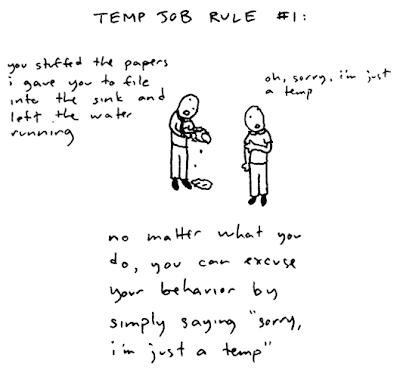 TEMP JOB RULE #1:
you stuffed the papers
i gave you to file
into the sink and
left the water
running
oh, sorry, i'm just
a temp
no matter what you
do, you can excuse
your behavior by
simply saying "sorry,
i'm just a temp"